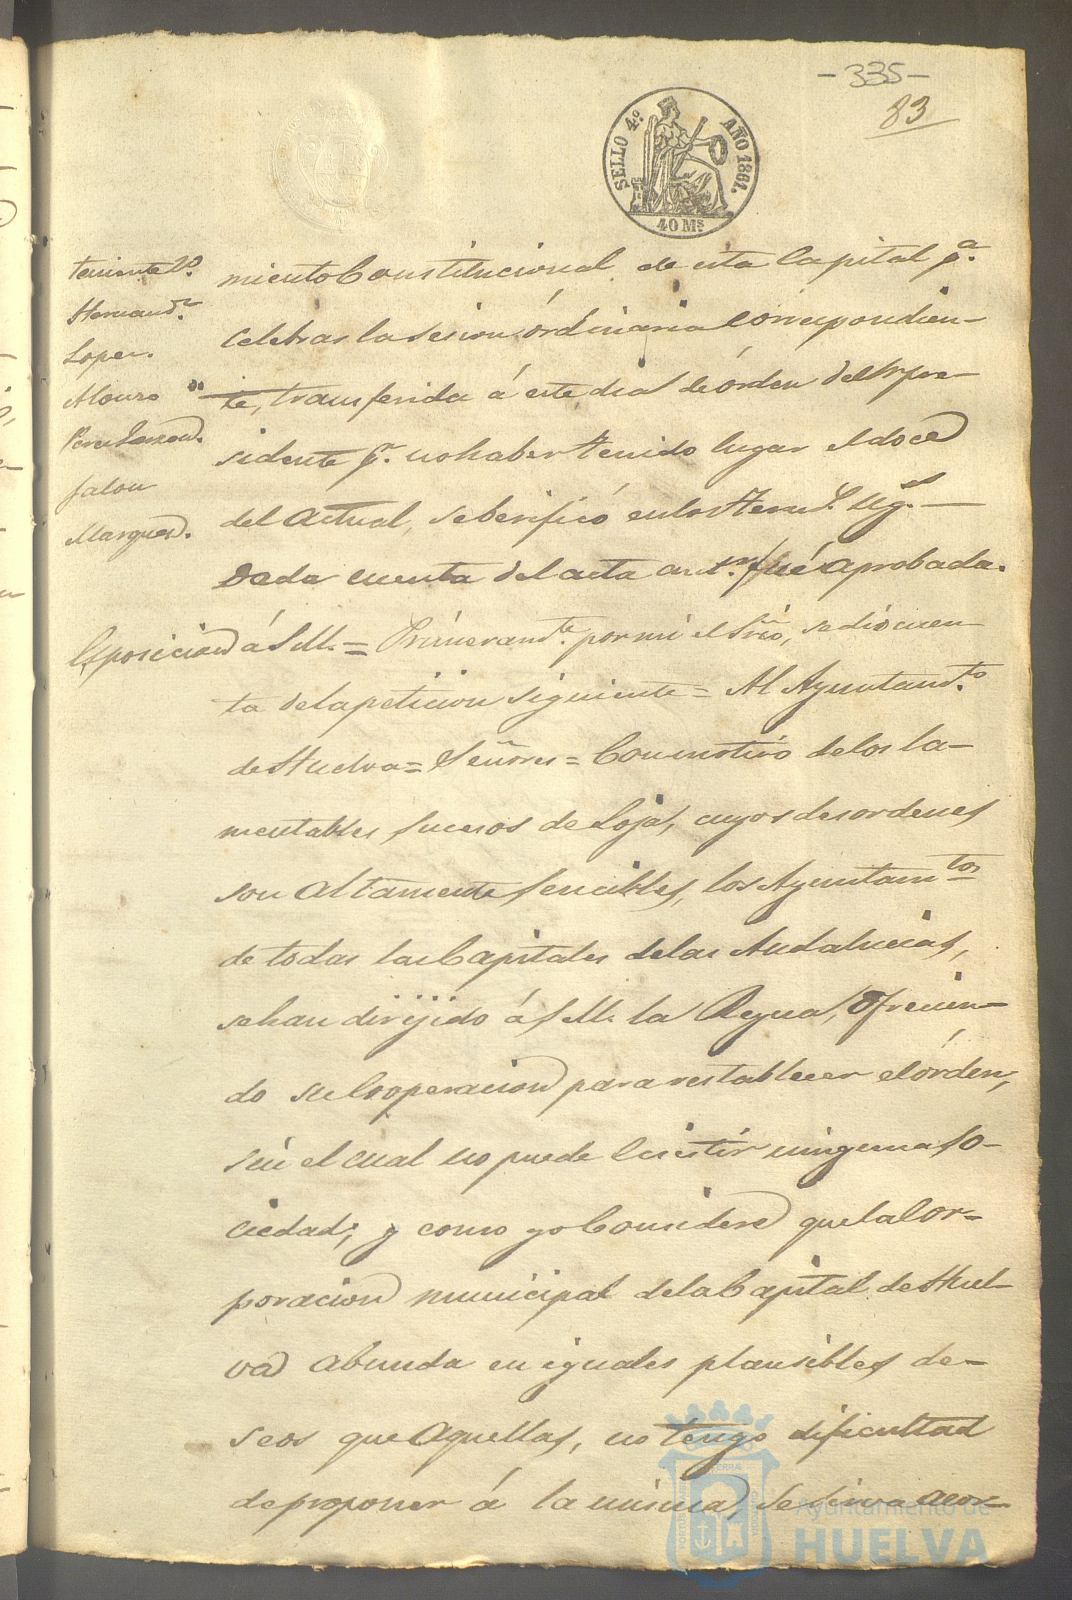 -335-
83
SELLO 4.º AÑO 1861.
40 Ms
teniente 2º.
Hernandz.
Lopez.
Alonso
Perez
Jalon
Marquez.
miento Constitucional de esta Capital pª.
Celebrar la sesion órdinaria correspondien-
te, transferida á este dia de órden del Sr pre-
sidente pr. no haber tenido lugar el doce
del actual, se berificó en los term.s sig.tes —
Dada cuenta del acta antr. fué aprobada.
Esposicion á S.M. = Primeramte. por mi el Srio, se dió cuen-
ta de la peticion siguiente = Al Ayuntamto.
de Huelva = Señores = Con motivo de los la-
mentables sucesos de Loja, cuyos desordenes
son altamente sencibles, los Ayuntamtos
de todas las Capitales de las Andalucias,
se han dirijido á S.M. la Reyna, Ofrecien-
do su Cooperacion para restablecer el órden,
sin el cual no puede Ecsistir ninguna so-
ciedad; y como yo Considere que la Cor-
poracion municipal de la Capital de Huel-
va abunda en iguales plausibles de-
seos que aquellas, no tengo dificultad
de proponer á la misma se sirva acor-
Ayuntamiento de
HUELVA